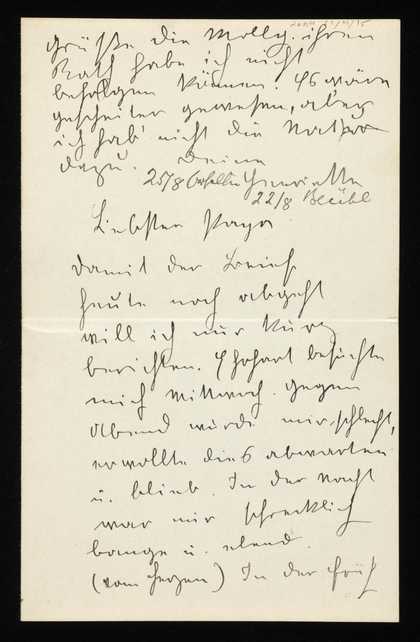 grüsse die Molly. ihren
Rath habe ich nicht
befolgen können. Es wäre
gescheiter gewesen, aber
ich hab' nicht die Natur
dazu. Deine
25/8 erhalten Henriette
22/8
Liebster Papa
damit der Brief
heute noch abgeht
will ich nur kurz
berichten. Ehrhart besuchte
mich Mittwoch. Gegen
Abend wurde mir schlecht,
er wollte dies abwarten
u. blieb. In der Nacht
war mir schrecklich
bange u. elend.
(vom Herzen) In der Früh